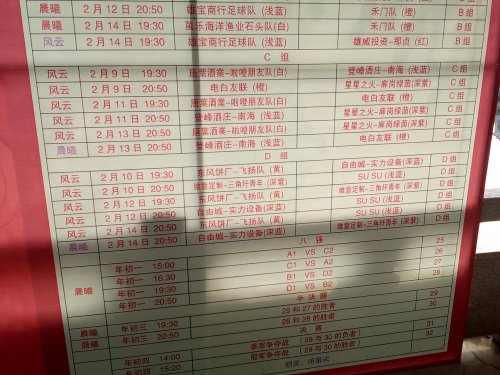 晨曦 2月12日 20:50 雄宝商行足球队(浅蓝) 禾门队(橙) B组
晨曦 2月14日 19:30 海洋渔业石头队(白) B组
风云 2月14日 20:50 雄宝商行足球队(浅蓝) 雄威投资-那贞(红) B组
C 组
风云 2月9日 19:30 唐莱酒业-啦噔朋友队(白) 登峰酒庄-南海(浅蓝) C组
风云 2月9日 20:50 电白友联(橙) 星星之火-麻岗绿茵(深紫) C组
风云 2月11日 19:30 唐莱酒业-啦噔朋友队(白) 电白友联(橙) C组
风云 2月11日 20:50 登峰酒庄-南海(浅蓝) 星星之火-麻岗绿茵(深紫) C组
风云 2月13日 19:30 唐莱酒业-啦噔朋友队(白) 星星之火-麻岗绿茵(深紫) C组
晨曦 2月13日 20:50 登峰酒庄-南海(浅蓝) 电白友联(橙) C组
D 组
风云 2月10日 19:30 东风饼厂-飞扬队(黄) 自由城-实力设备(深蓝) D组
风云 2月10日 20:50 雄意定制-三角圩青年(深紫) SU SU(浅蓝) D组
风云 2月12日 19:30 东风饼厂-飞扬队(黄) 雄意定制-三角圩青年(深紫) D组
风云 2月12日 20:50 自由城-实力设备(深蓝) SU SU(浅蓝) D组
风云 2月14日 19:30 东风饼厂-飞扬队(黄) SU SU(浅蓝) D组
晨曦 2月14日 20:50 自由城-实力设备(深蓝) 雄意定制-三角圩青年(深紫) D组
八 强
晨曦 年初一 15:00 A1 VS C2 25
年初一 16:30 C1 VS A2 26
年初一 19:30 D1 VS B2 27
年初一 20:50 B1 VS D2 28
半 决 赛
晨曦 年初三 19:30 25和27的胜者 29
晨曦 年初三 20:50 26和28的胜者 30
决 赛
年初四 14:00 季军争夺战(29与30的负者) 31
年初四 15:20 冠军争夺战(29与30的胜者) 32
颁奖、闭幕式